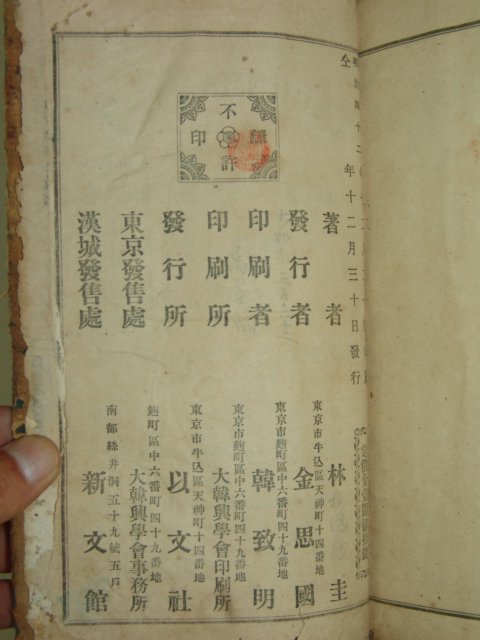 明治四十二年十二月
仝年十二月三十日發行
不許飜印
著者 東京市牛込區天神町十四番地 林圭
發行者 東京市麴町區中六番町四十九番地 金思國
印刷者 東京市麴町區中六番町四十九番地 韓致明
印刷所 東京市麴町區中六番町四十九番地 大韓興學會印刷所
發行所 東京市牛込區天神町十四番地 以文社
東京發售處 麴町區中六番町四十九番地 大韓興學會事務所
漢城發售處 南部絲井洞五十九統五戶 新文館